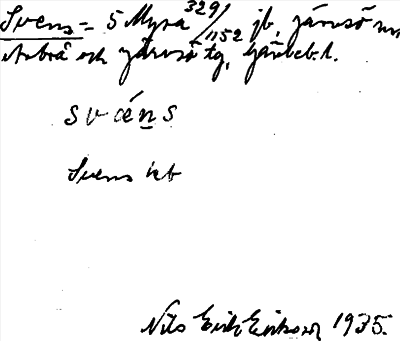 Svens = 5 Myra 329/1152 jb, Järvsö sn
Arbrå och Järvsö tg, Gävleb. l.
svéns
Svens kb
Nils Erik Eriksson 1935.